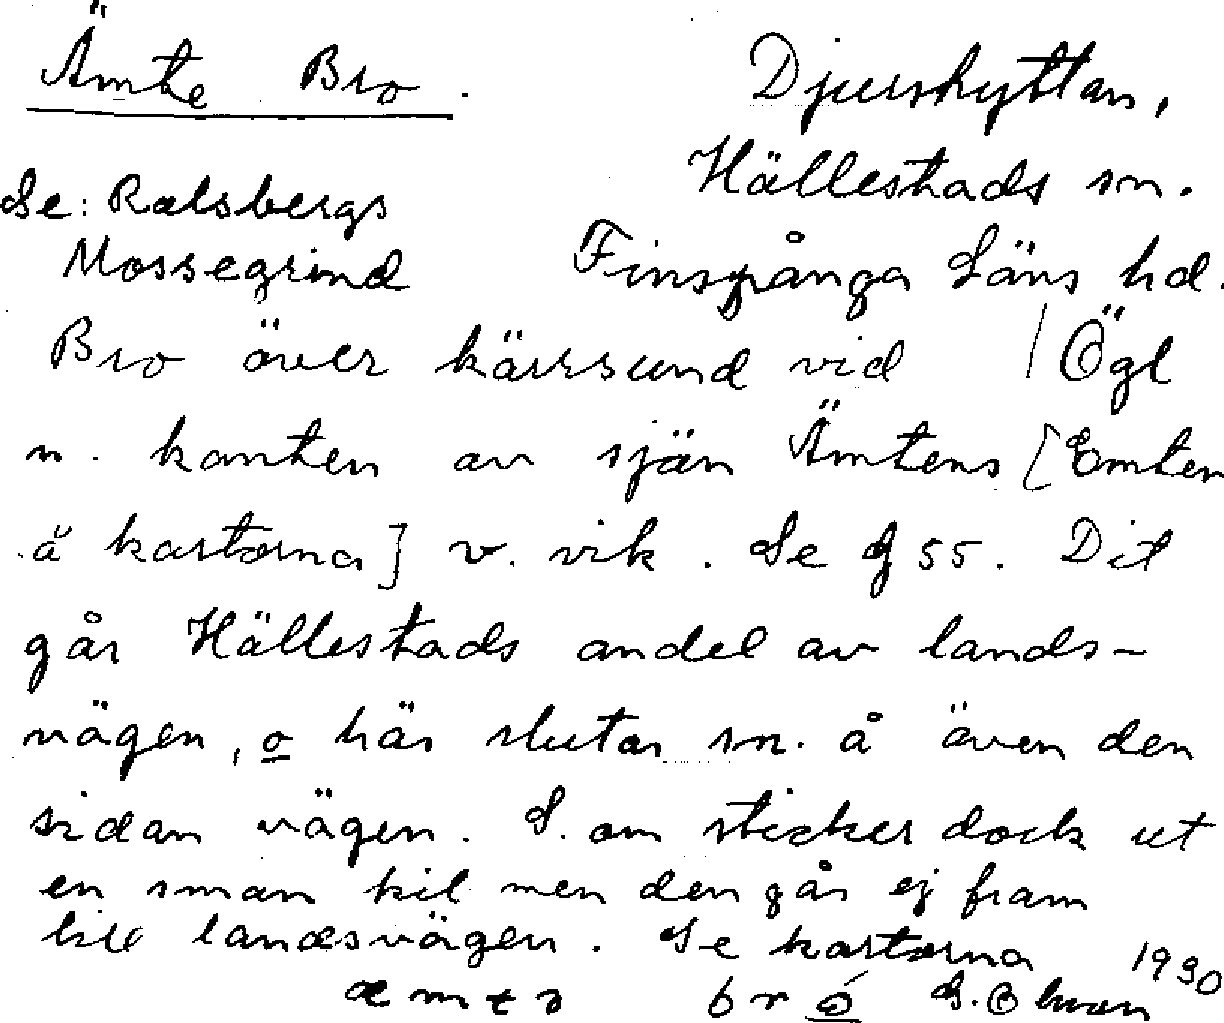 Ämte Bro.
Djurshyttan,
Hällestads sn.
Se: Ralsbergs
Mossegrind
Finspånga Läns hd.
Bro över kärrsund vid / Ögl
n. kanten av sjön Ämtens [Emten
å kartorna] v. vik. Se 55. Dit
går Hällestads andel av lands-
vägen, o här slutar sn. å även den
sidan vägen. S. om sticker dock ut
en sman kil men den går ej fram
till landsvägen. Se kartorna 1930
æmtə bro